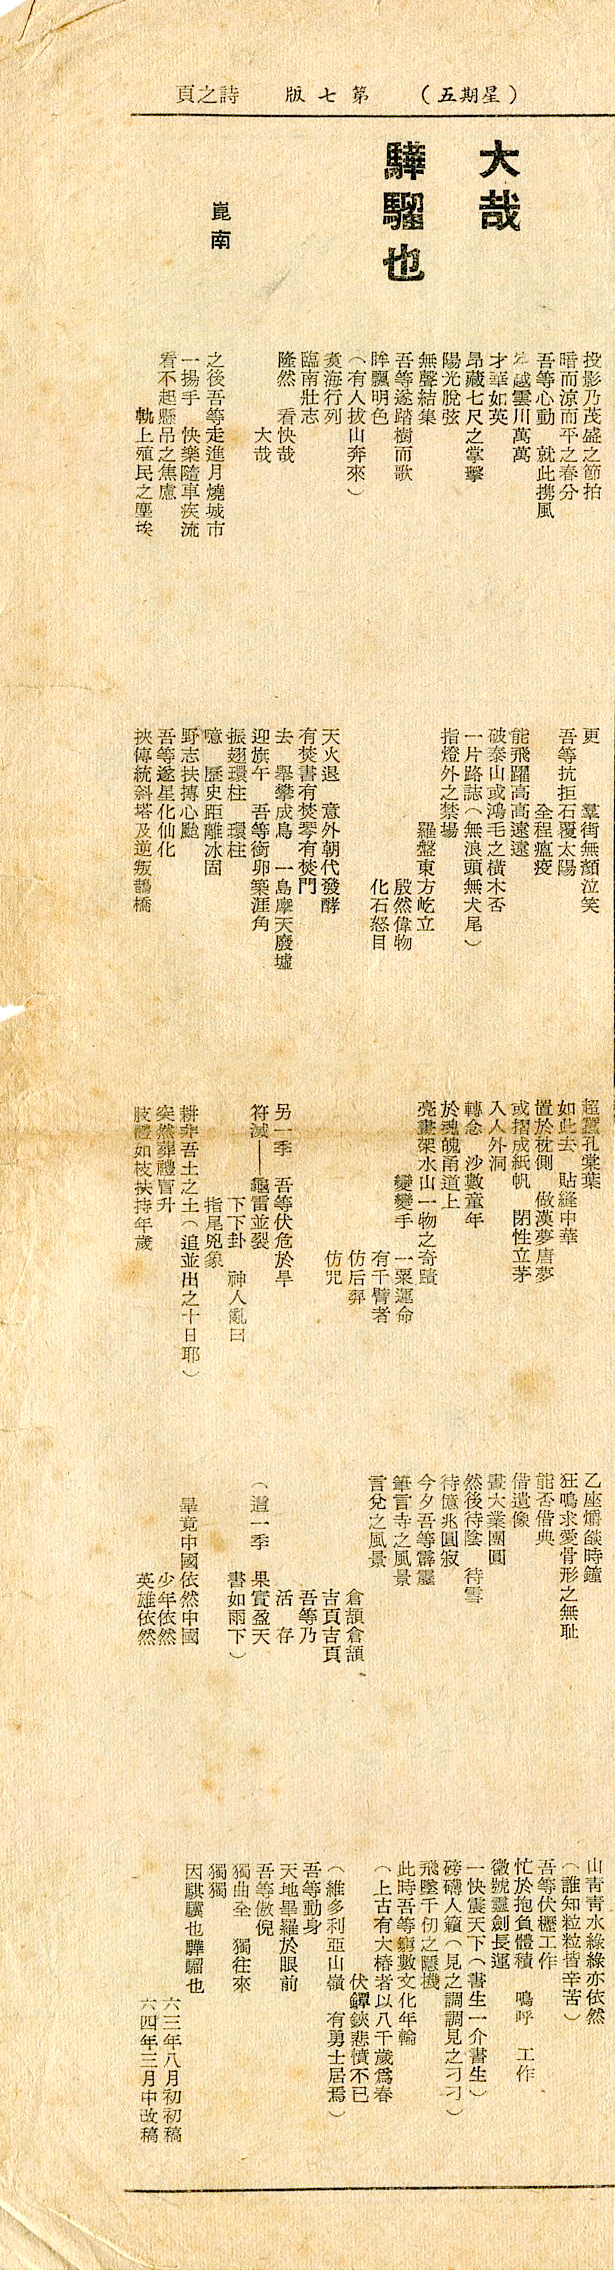 (星期五) 第七版 詩之頁
大哉
驊騮也
崑南
投影乃茂盛之節拍
暗而涼而平之春分
吾等心動 就此携風
越雲川萬萬
才華如英
昂藏七尺之掌擊
陽光脫弦
無聲結集
吾等遂踏樹而歌
眸飄明色
(有人拔山奔來)
袞海行列
臨南壯志
隆然 看快哉
大哉
之後吾等走進月燒城市
一揚手 快樂隨車疾流
看不起懸吊之焦慮
軌上殖民之塵埃
更 羣街無顏泣笑
吾等抗拒石覆太陽
全程瘟疫
能飛躍高高遠遠
破泰山或鴻毛之橫木否
一片路誌(無浪頭無犬尾)
指燈外之禁場
羅盤東方屹立
殷然偉物
化石怒目
天火退 意外朝代發酵
有焚書有焚琴有焚門
去 舉攀成鳥 一島摩天廢墟
迎旗午 吾等銜卵築涯角
振翅環柱 環柱
噫 歷史距離冰固
野志扶摶心颱
吾等遂星化仙化
挾傳統斜塔及逆叛鵲橋
超蠶孔棠葉
如此去 貼縫中華
置於枕側 做漢夢唐夢
或摺成紙帆 閉性立茅
入人外洞
轉念 沙數童年
於魂魄甬道上
亮畫架水山一物之奇蹟
變變手 一粟運命
有千臂者
仿后羿
仿咒
另一季 吾等伏危於旱
符滅——龜雷並裂
下下卦 神人亂曰
指尾兇象
耕非吾土之土(追並出之十日耶)
突然葬禮冒升
肢體如枝扶持年歲
乙座爝燄時鐘
狂鳴求愛骨形之無耻
能否借典
借遺像
畫大業團圓
然後待陰 待雪
待億兆圓寂
今夕吾等霹靂
筆言寺之風景
言兌之風景
倉頡倉頡
吉頁吉頁
吾等乃
活 存
(這一季 果實盈天
書如雨下)
畢竟中國依然中國
少年依然
英雄依然
山靑靑水綠綠亦依然
(誰知粒粒皆辛苦)
吾等伏櫪工作
忙於抱負體積 嗚呼 工作
徽號靈劍長運
一快震天下(書生一介書生)
磅礡人籟(見之調調見之刁刁)
飛墜千仞之隱機
此時吾等窮數文化年輪
(上古有大椿者以八千歲爲春
伏鐔鋏悲憤不已
(維多利亞山嶺 有勇士居焉)
吾等動身
天地畢羅於眼前
吾等傲倪
獨曲全 獨往來
獨獨
因騏驥也驊騮也
六三年八月初初稿
六四年三月中改稿